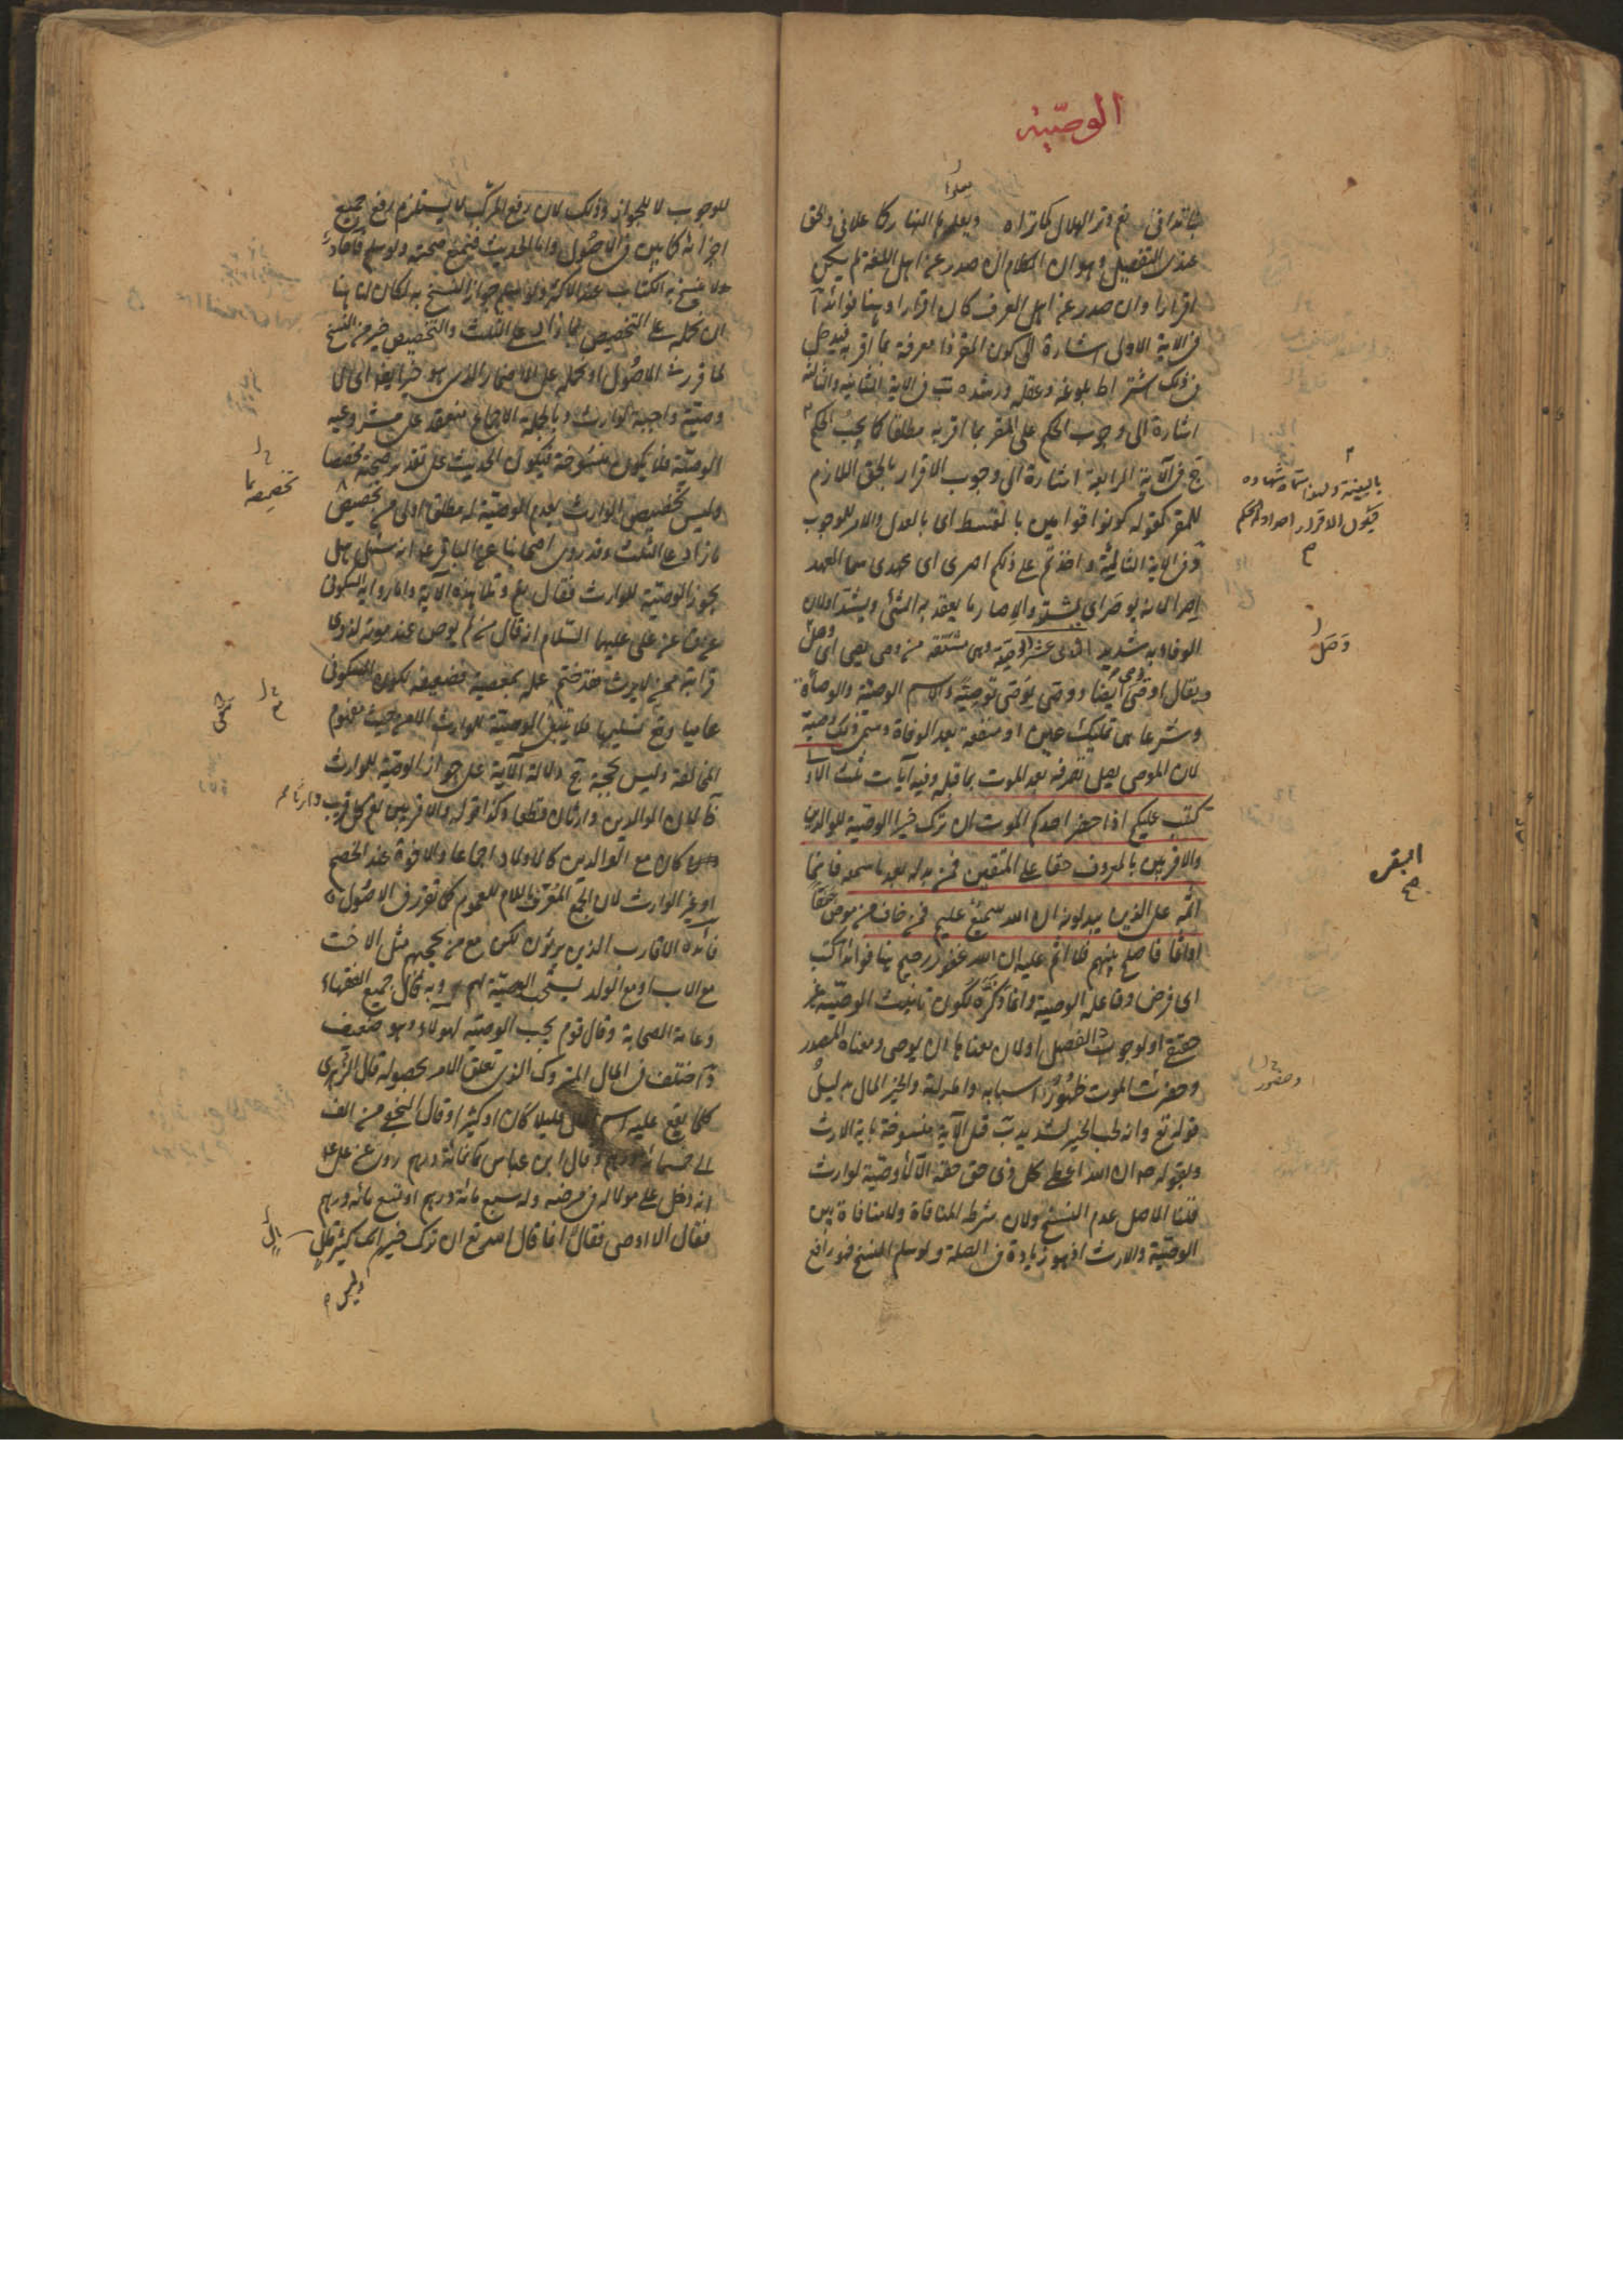 الوصيّة
بنا تدانى نعم وتر الهلال كما تراه ويعلوها النهار كما علانى والحق
عندى التفصيل وهو ان الكلام ان صدر عن اهل اللغة لم يكن
اقرارا وان صدر عن اهل العرف كان اقرارا وهنا فوائد آ
فى الاية الاولى اشارة الى كون المقر ذا معرفة بما اقر به فيدخل
فى ذلك اشتراط بلوغه وعقله ورشده ب فى الاية الثانية والثالثة
اشارة الى وجوب الحكم على المقر بما اقر به مطلقا كما يجب الحكم
بالبينة ولهذا سماه شهادة
فيكون الاقرار احد اداة الحكم
ج فى الآية الرابعة اشارة الى وجوب الاقرار بالحق اللازم
للمقر كقوله كونوا قوامين بالقسط اى بالعدل والامر للوجوب
وفى الاية الثالثة واخذتم على ذلكم اصرى اى عهدى سمى العهد
اصرا لانه يوصر اى يشد والاصار ما يعقد به الشئ ويشد اولان
الوفاء به شديد الثانى عشر الوصية وهى مشتقة من وصى يصى اى وصل
وصل
ويقال اوصى ايضا ووصى يوصى توصية والاسم الوصية والوصاة
وشرعا هى تمليك عين او منفعة بعد الوفاة وسمى ذلك وصية
لان الموصى يصل تصرفه بعد الموت بما قبله وفيه آيات ثلث الاولى
كتب عليكم اذا حضر احدكم الموت ان ترك خيرا الوصية للوالدين
والاقربين بالمعروف حقا على المتقين فمن بدله بعد ما سمعه فانما
البقره
اثمه على الذين يبدلونه ان الله سميع عليم فمن خاف من موص جنفا
او اثما فاصلح بينهم فلا اثم عليه ان الله غفور رحيم هنا فوائد آ كتب
اى فرض وفاعله الوصية وانما ذكره لكون تانيث الوصية غير
حقيقى او لوجود الفصل اولان معناها ان يوصى ومعناه المصدر
وحضور الموت ظهور اسبابه واماراته والخير المال بدليل
قوله تع وانه لحب الخير لشديد ب قيل الآية منسوخة باية الارث
وبقوله ص ان الله اعطى كل ذى حق حقه الا لا وصية لوارث
قلنا الاصل عدم النسخ ولان شرطه المنافاة ولا منافاة بين
الوصية والارث اذ هو زيادة فى الصلة ولو سلم النسخ فهو رافع
للوجوب لا للجواز وذلك لان رفع المركب لا يستلزم رفع جميع
اجزائه كما بين فى الاصول واما الحديث فيمنع صحته ولو سلم فآحاد
ولا ينسخ به الكتاب عند الاكثر ولو سلم جواز النسخ به لكان لنا هنا
ان نحمله على التخصيص بما زاد على الثلث والتخصيص خير من النسخ
لما قرر فى الاصول او نحمله على الاضمار الذى هو خير ايضا اى لا
وصية واجبة لوارث وبالجملة الاجماع منعقد على مشروعية
الوصية فلا يكون منسوخة فيكون الحديث على تقدير صحته مخصصا
وليس تخصيص الوارث بعدم الوصية له مطلقا اولى من تخصيصه بما
زاد على الثلث وقد روى اصحابنا عن الباقر ع انه سئل هل
يجوز الوصية للوارث فقال نعم وتلا هذه الآية واما رواية السكونى
عن ق عن على عليهما السلام انه قال من لم يوص عند موته لذوى
قرابته ممن لا يرث فقد ختم عمله بمعصية فضعيفة لكون السكونى
عاميا ومع تسليمها فلا ينفى الوصية للوارث الا من حيث مفهوم
المخالفة وليس بحجة ج دلالة الآية على جواز الوصية للوارث
ظ لان الوالدين وارثان قطعا وكذا قوله والاقربين يعم كل قريب وارثا
كان مع الوالدين كالاولاد اجماعا والاخوة عند الخصم
او غير الوارث لان الجمع المعرف باللام للعموم كما تقرر فى الاصول
فائدة الاقارب الذين يرثون لكن مع من يحجبهم مثل الاخت
مع الاب او مع الولد يستحب الوصية لهم وبه قال جميع الفقهاء
وعامة الصحابة وقال قوم يجب الوصية لهؤلاء وهو ضعيف
د اختلف فى المال المتروك الذى تعلق الامر بحصوله قال الزهرى
كلما يقع عليه اسم المال قليلا كان او كثيرا وقال النخعى من الف
الى خمسمائة درهم وقال ابن عباس ثمانمائة درهم روى عن على ع
انه دخل على مولى له فى مرضه وله سبع مائة درهم او تسع مائة درهم
فقال الا اوصى فقال لا انما قال الله تع ان ترك خيرا اى كثير مال
وليس